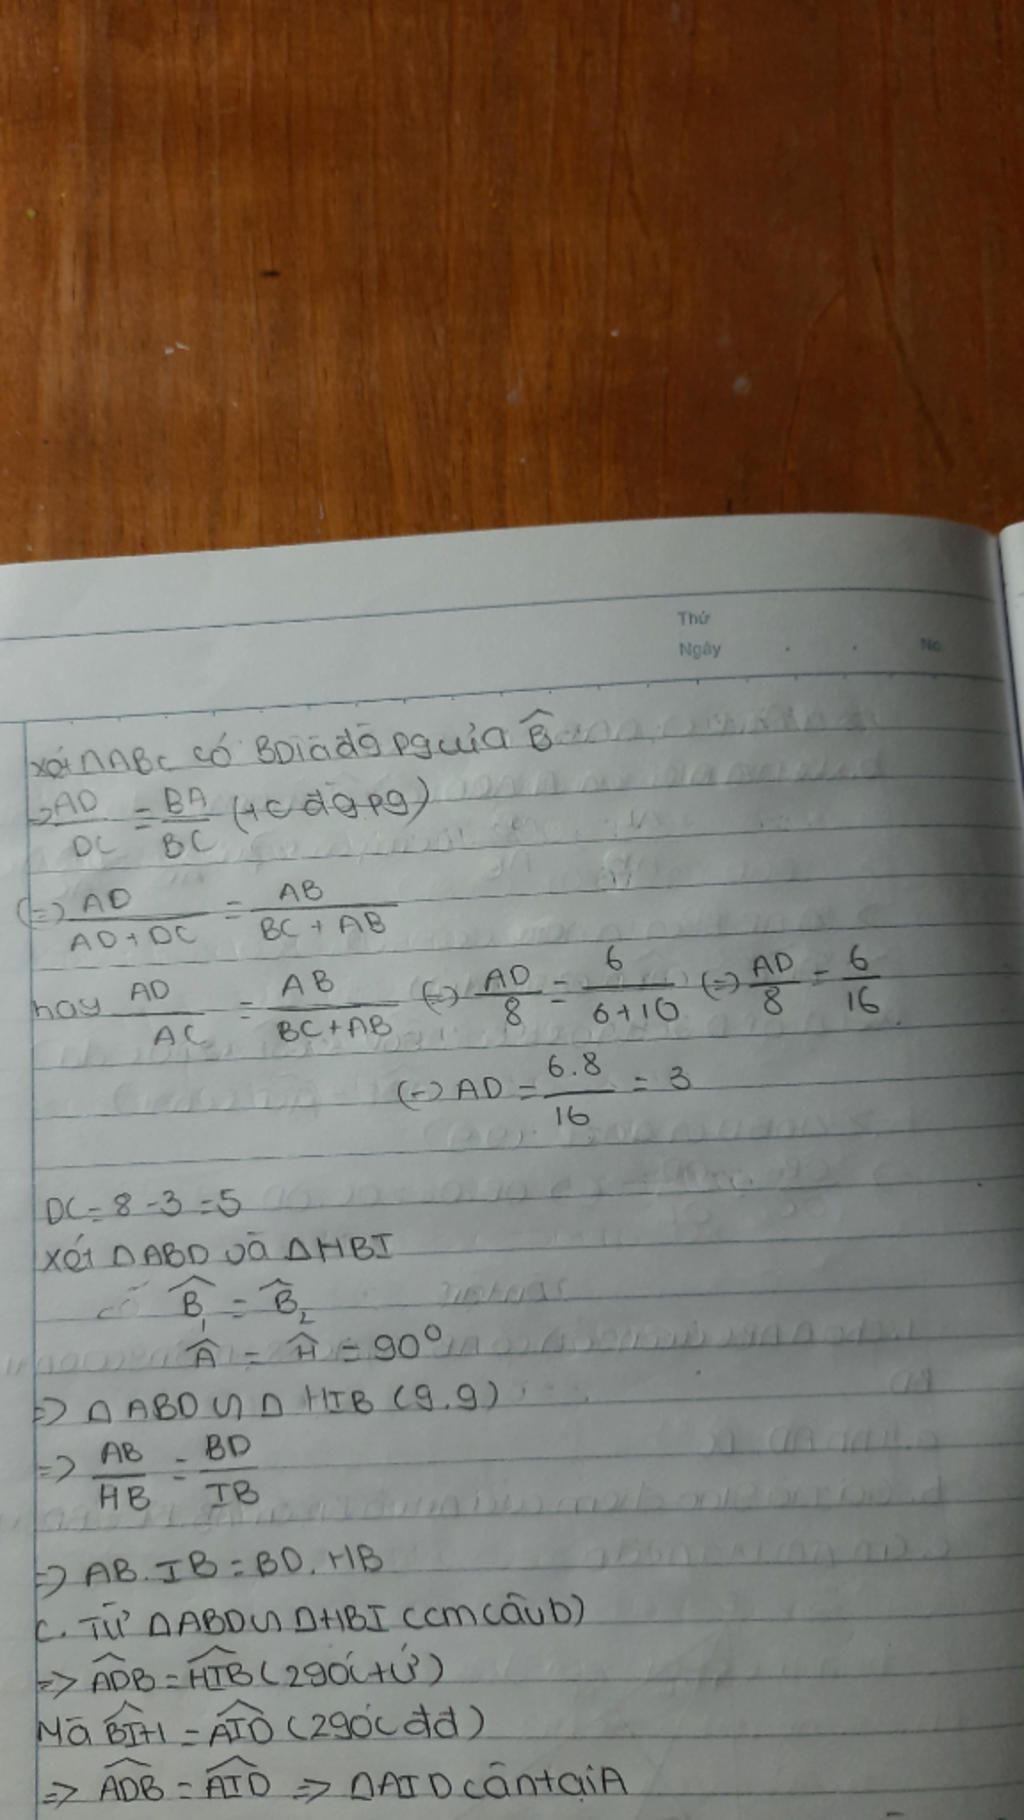 Thứ
Ngày . . No
Xét ΔABC có BD là đg pg của B̂
=> AD/DC = BA/BC (t/c đg pg)
(=) AD/(AD+DC) = AB/(BC+AB)
hay AD/AC = AB/(BC+AB) (=) AD/8 = 6/(6+10) (=) AD/8 = 6/16
(=) AD = 6.8/16 = 3
DC = 8 - 3 = 5
Xét ΔABD và ΔHBI
có B̂₁ = B̂₂
Â = Ĥ = 90°
=> ΔABD ᔕ ΔHIB (g.g)
=> AB/HB = BD/IB
=> AB.IB = BD.HB
C. Từ ΔABD ᔕ ΔHBI (cm câu b)
=> ADB̂ = HIB̂ (2 góc t/ứ)
Mà BIĤ = AID̂ (2 góc đđ)
=> ADB̂ = AID̂ => ΔAID cân tại A